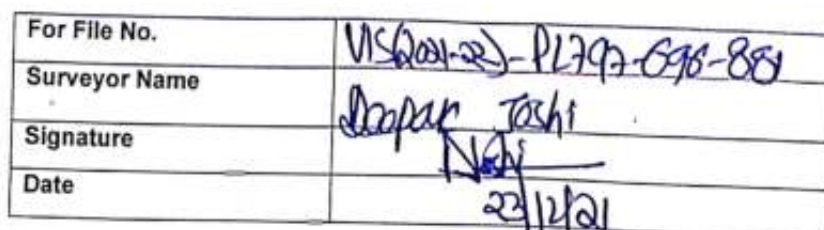 For File No. VIS(2021-22)-PL797-696-881
Surveyor Name Deepak Joshi
Signature
Date 23/12/21